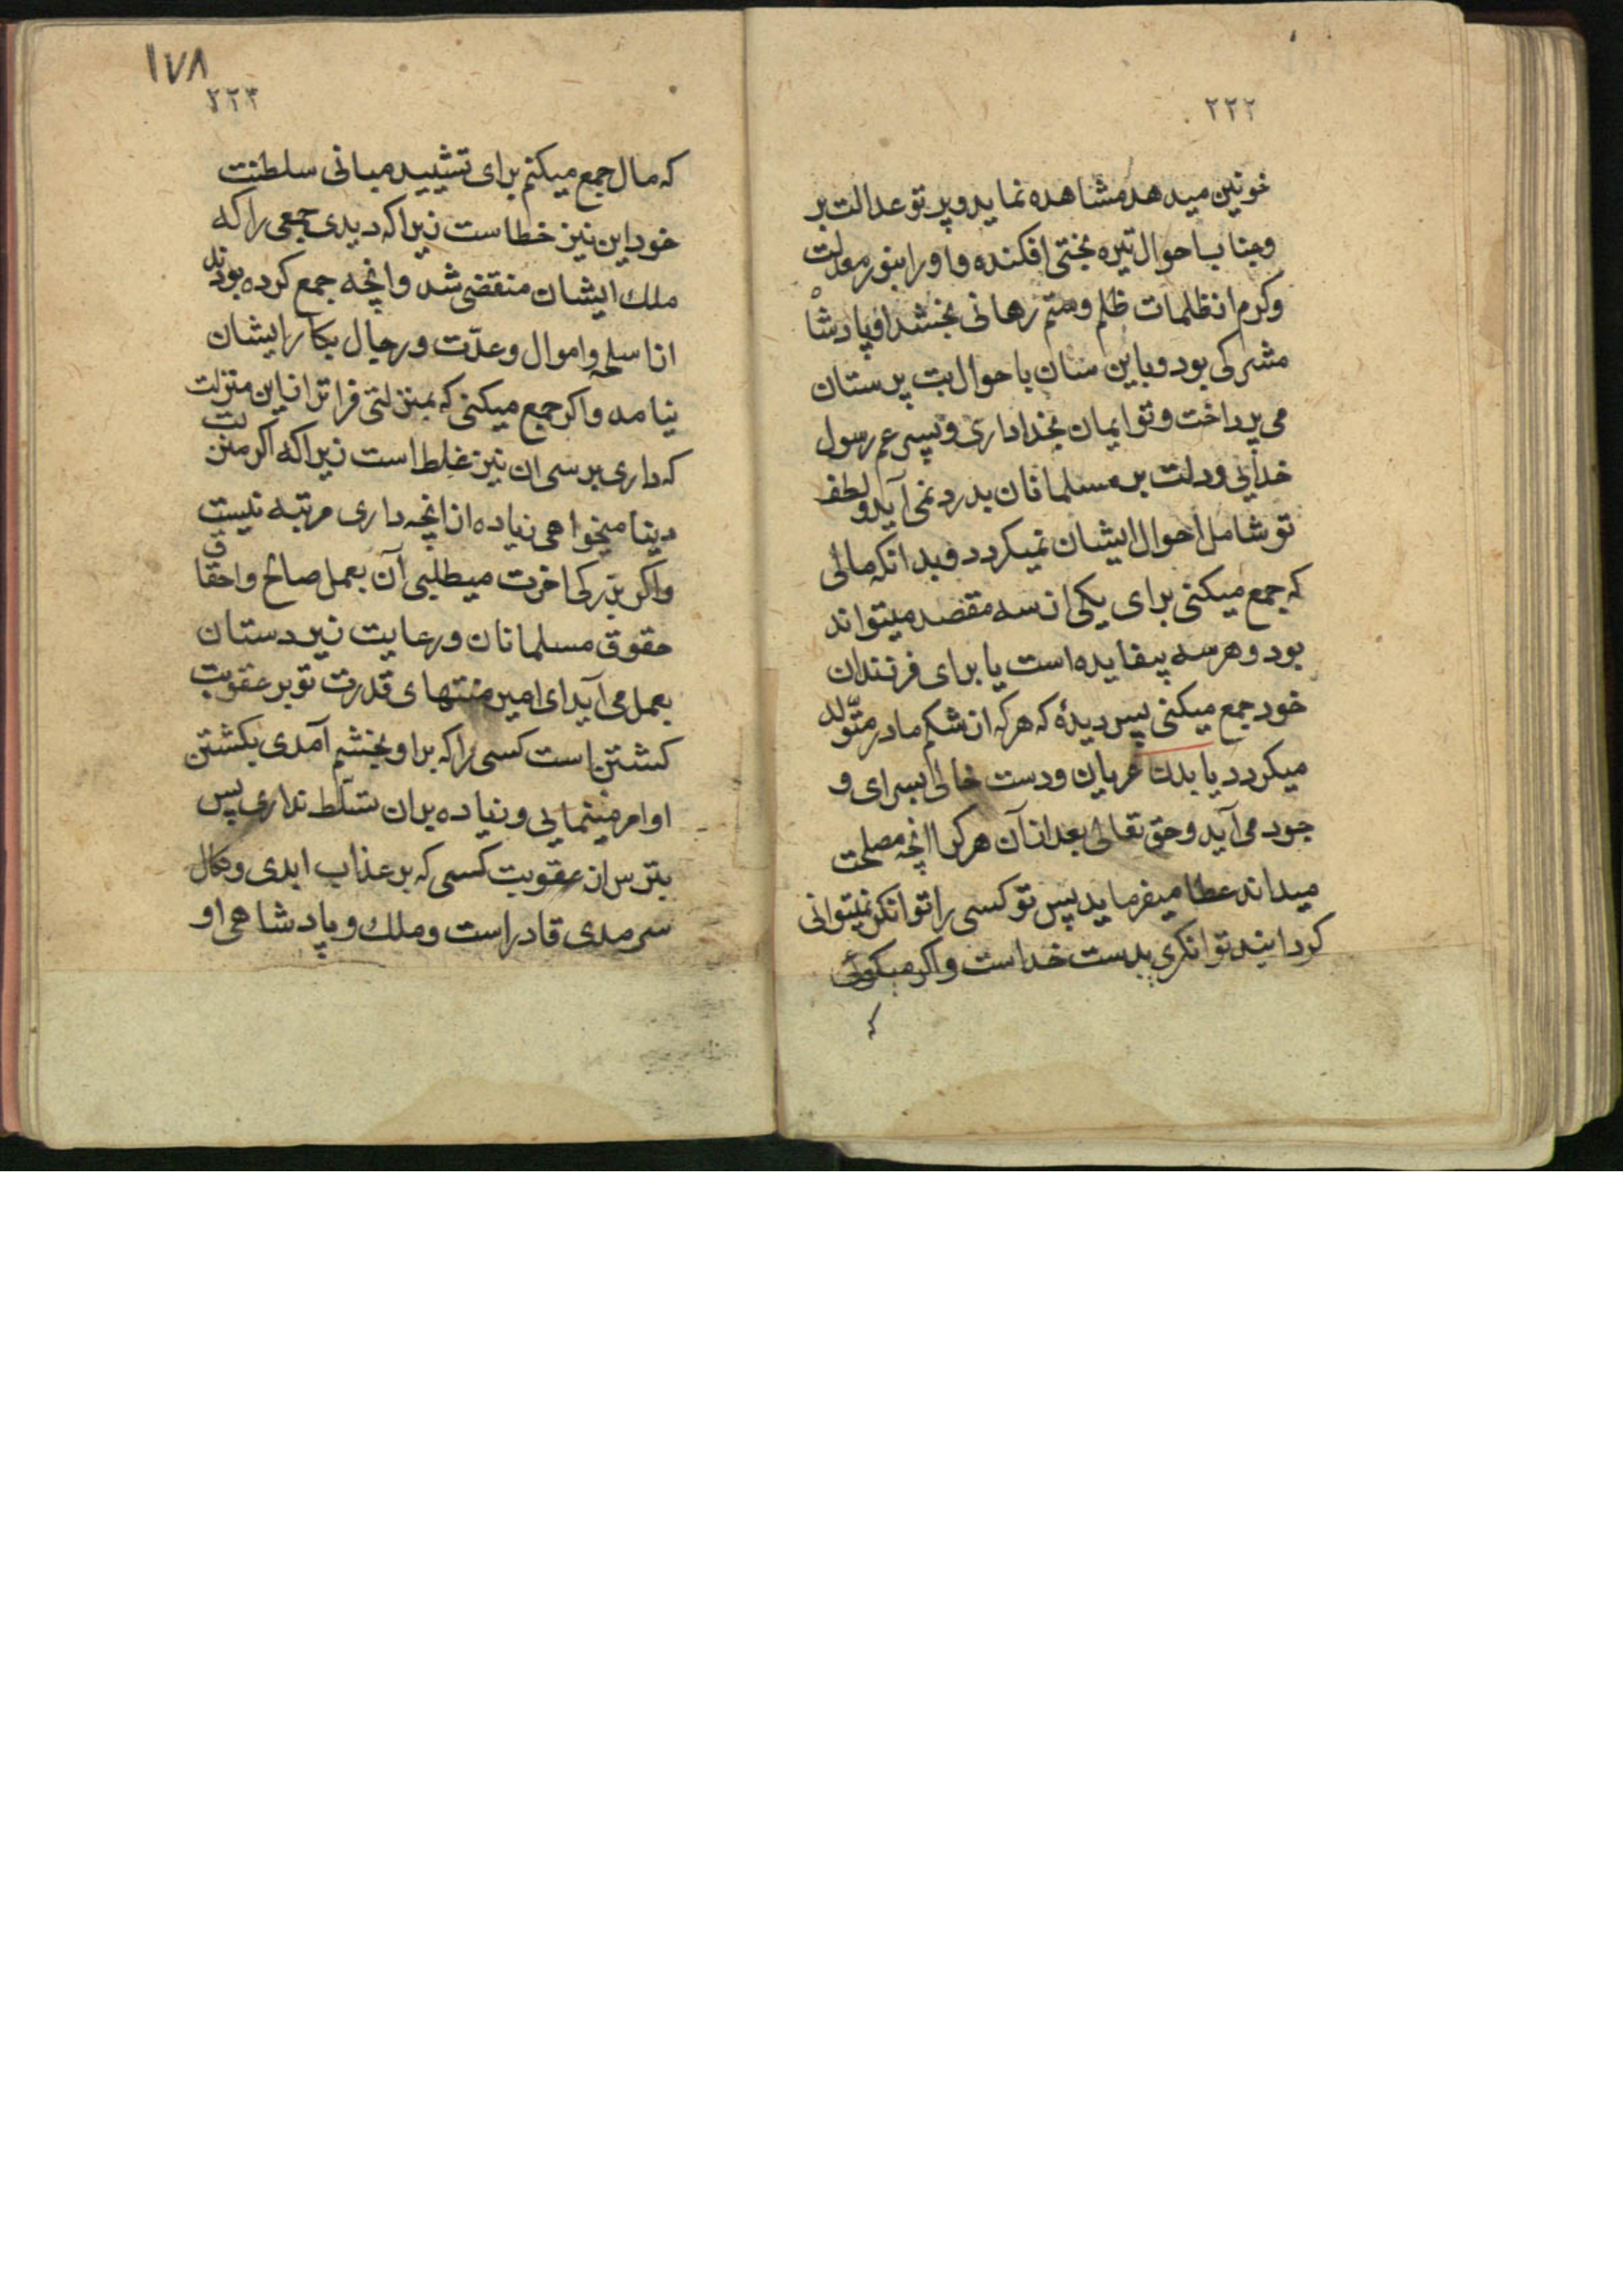 ۲۲۲
خونین میدهد مشاهده نماید و پرتو عدالت بر
وجنابا حوال تیره بختی افکنده و اورا بنور معدلت
و کرم از ظلمات ظلم و ستم رهانی بخشد او پادشاه
مشرکی بود و باین سان باحوال بت پرستان
می پرداخت و تو ایمان بخدا داری و پسر عم رسول
خدایی و دلت بر مسلمانان بدرد نمی آید و لطف
تو شامل احوال ایشان نمیکردد و بدانکه مالی
که جمع میکنی برای یکی از سه مقصد میتواند
بود و هر سه بیفایده است یا برای فرزندان
خود جمع میکنی پس دیدۀ که هر که از شکم مادر متولد
میکردد با بدن عریان و دست خالی بسرای و
جود می آید و حق تعالی بعد از آن هر کرا انچه مصلحت
میداند عطا میفرماید پس تو کسی را توانکر نمیتوانی
کردانید توانکری بدست خداست و اکر میکوئی
که
۱۷۸
۲۲۳
که مال جمع میکنم برای تشیید مبانی سلطنت
خود این نیز خطاست زیرا که دیدی جمعی را که
ملک ایشان منقضی شد و انچه جمع کرده بودند
از اسلحه و اموال و عدّت و رجال بکار ایشان
نیامد و اکر جمع میکنی که بمنزلتی فراتر از این منزلت
که داری برسی ان نیز غلط است زیرا که اکر منزلت
دینا میخواهی زیاده از انچه داری مرتبه نیست
و اکر بزرکی اخرت میطلبی آن بعمل صالح و احقاق
حقوق مسلمانان و رعایت زیر دستان
بعمل می آید ای امیر منتهای قدرت تو بر عقوبت
کشتن است کسی را که بر او بخشم آمدی بکشتن
او امر مینمایی و زیاده بر ان تسلّط نداری پس
بترس از عقوبت کسی که بر عذاب ابدی و نکال
سرمدی قادر است و ملک و پادشاهی او